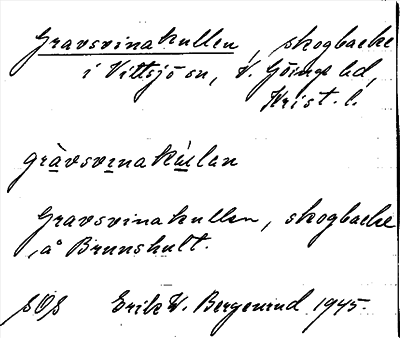 Gravsvinakullen, skogbacke
i Vittsjö sn, V. Göinge hd,
Krist. l.
gràvsvinakúlan
Gravsvinakullen, skogbacke
å Brunshult.
SOS Erik W. Bergenrud 1945.